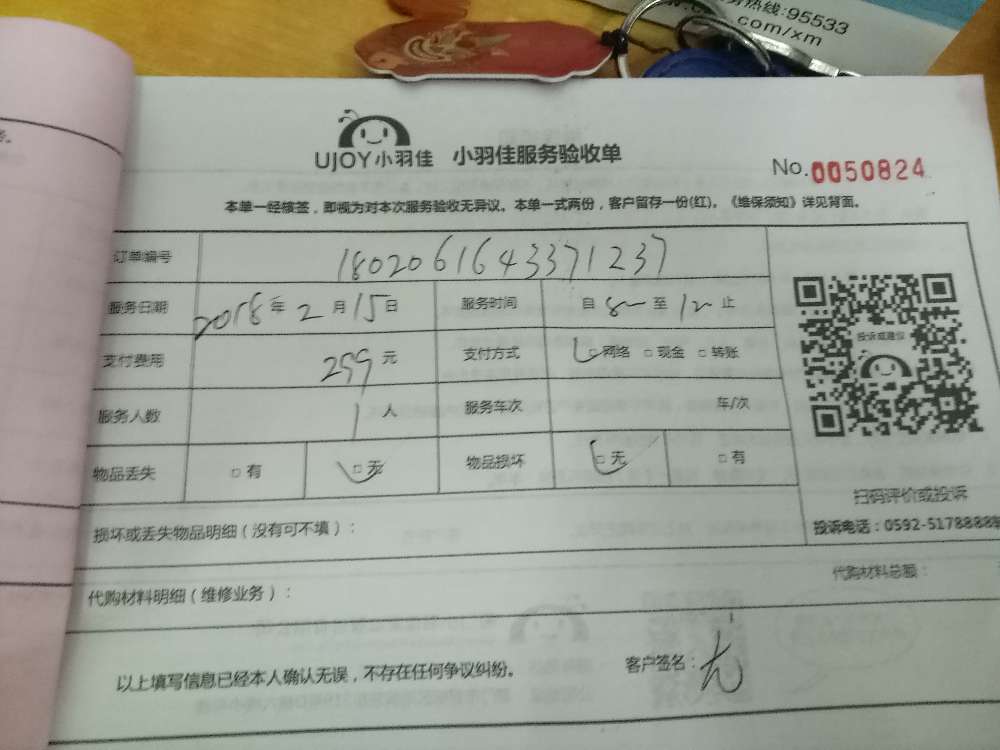 务热线:95533
.com/xm
UJOY小羽佳 小羽佳服务验收单
No.0050824
本单一经核签，即视为对本次服务验收无异议。本单一式两份，客户留存一份(红)。《维保须知》详见背面。
订单编号 1802061643371237
服务日期 2018年2月15日 服务时间 自8至12止
支付费用 299元 支付方式 □网络 □现金 □转账
服务人数 1人 服务车次 车/次
物品丢失 □有 □无 物品损坏 □无 □有
投诉或建议
扫码评价或投诉
投诉电话：0592-5178888
损坏或丢失物品明细（没有可不填）：
代购材料明细（维修业务）： 代购材料总额：
以上填写信息已经本人确认无误，不存在任何争议纠纷。 客户签名：